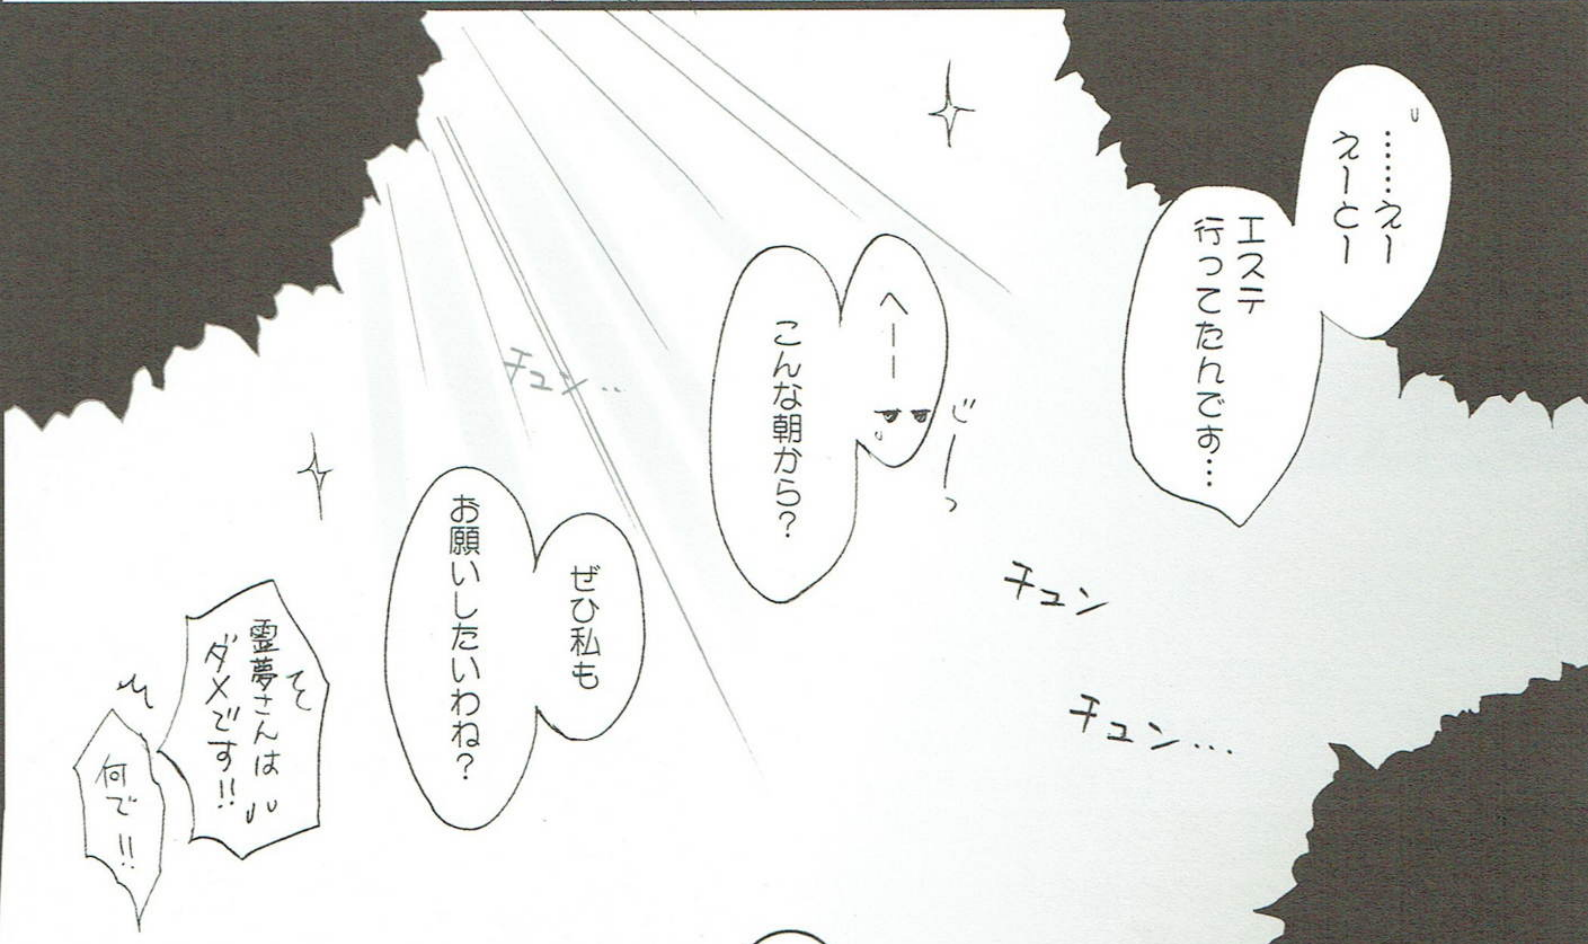 ……えー
えーとー
エステ
行ってたんです…
へーー
じーーっ
こんな朝から?
チュン…
チュン
チュン…
ぜひ私も
お願いしたいわね?
霊夢さんは
ダメです!!
何で!!